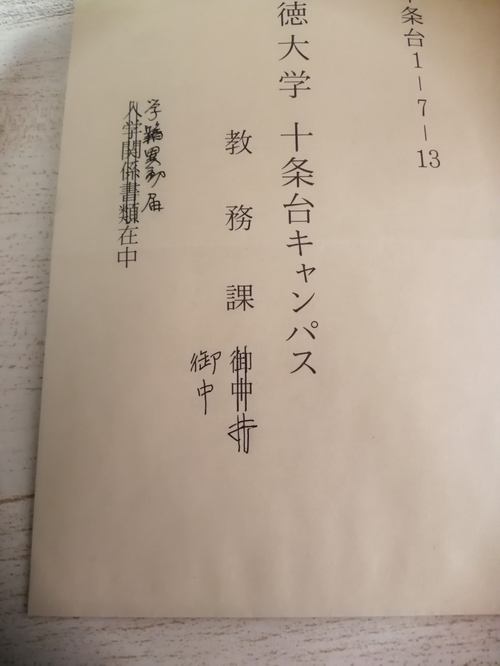 十条台1－7－13
徳大学 十条台キャンパス
教務課 御中 行
御中
学籍異動届
入学関係書類在中